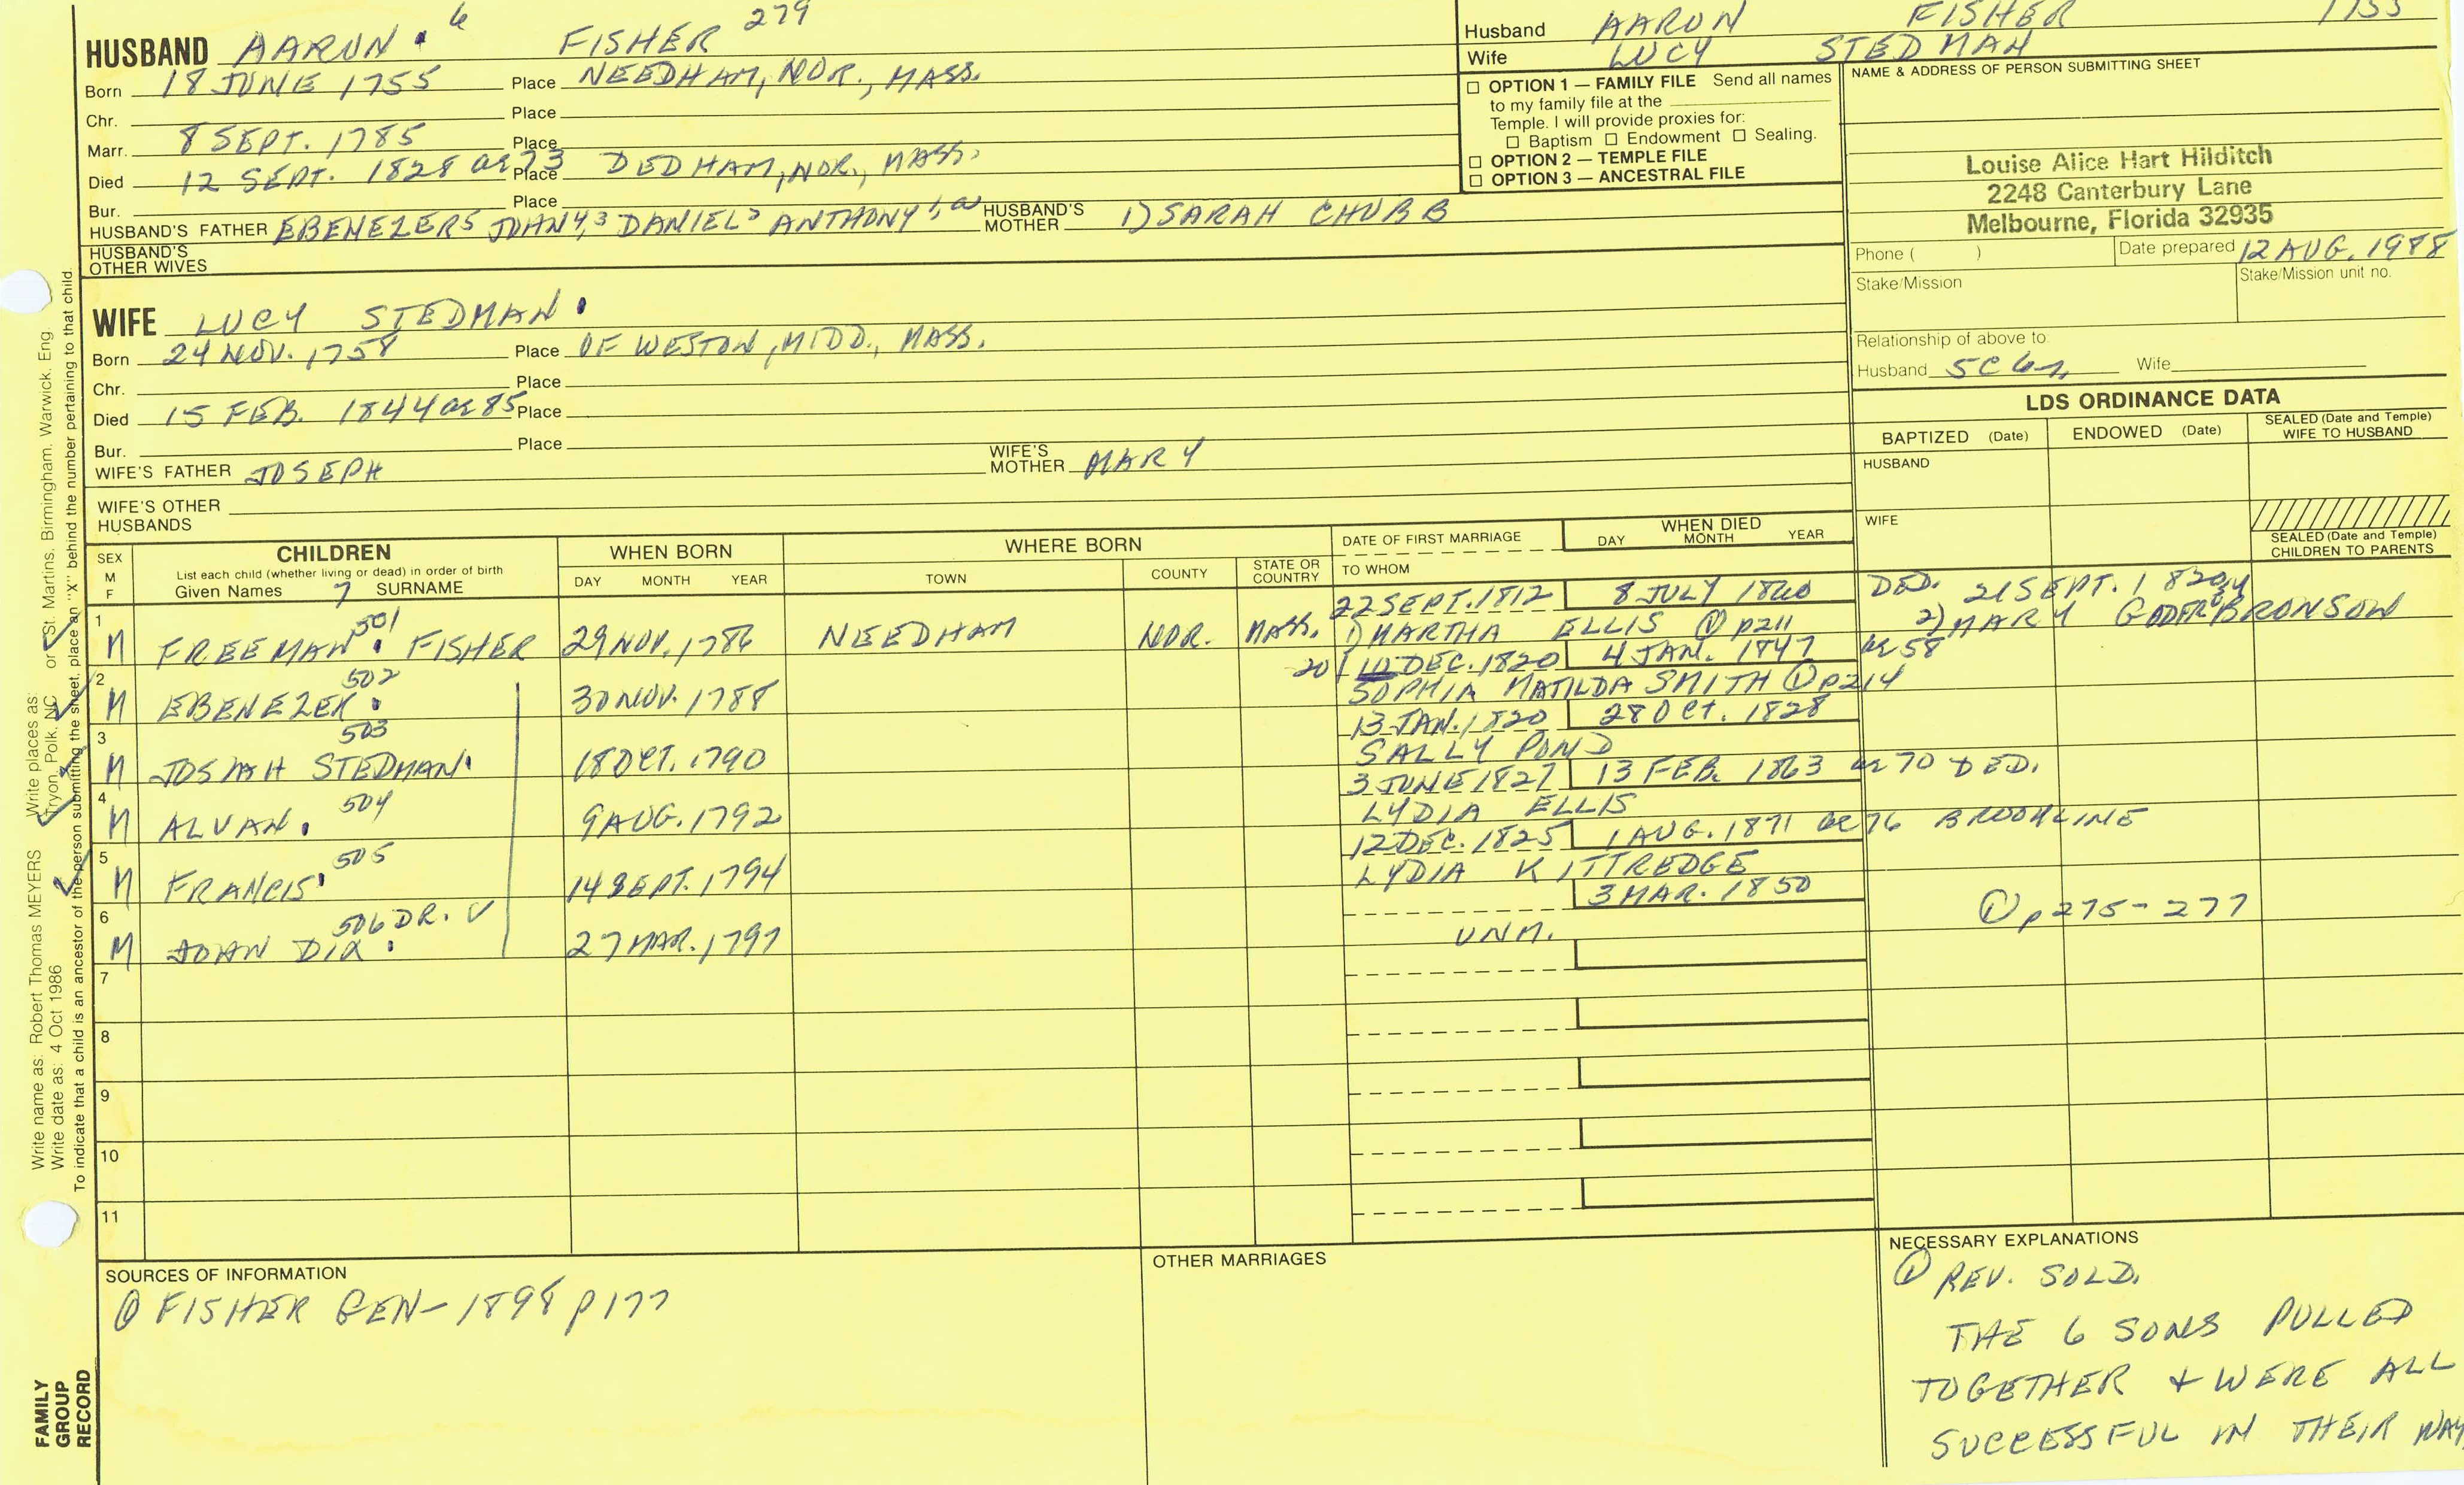 HUSBAND AARON 6 FISHER 279
Born 18 JUNE 1755 Place NEEDHAM, NOR., MASS.
Chr. Place
Marr. 8 SEPT. 1785 Place
Died 12 SEPT. 1828 ae 73 Place DEDHAM, NOR., MASS.
Bur. Place
HUSBAND'S FATHER EBENEZER5 JOHN4,3 DANIEL2 ANTHONY1,a HUSBAND'S MOTHER 1) SARAH CHUBB
HUSBAND'S OTHER WIVES
Husband AARON FISHER 1755
Wife LUCY STEDMAN
☐ OPTION 1 — FAMILY FILE Send all names
to my family file at the
Temple. I will provide proxies for:
☐ Baptism ☐ Endowment ☐ Sealing.
☐ OPTION 2 — TEMPLE FILE
☐ OPTION 3 — ANCESTRAL FILE
NAME & ADDRESS OF PERSON SUBMITTING SHEET
Louise Alice Hart Hilditch
2248 Canterbury Lane
Melbourne, Florida 32935
Phone ( ) Date prepared 12 AUG. 1988
Stake/Mission Stake/Mission unit no.
Relationship of above to:
Husband 5C 6 Wife
WIFE LUCY STEDMAN
Born 24 NOV. 1758 Place OF WESTON, MIDD., MASS.
Chr. Place
Died 15 FEB. 1844 ae 85 Place
Bur. Place
WIFE'S FATHER JOSEPH WIFE'S MOTHER MARY
WIFE'S OTHER HUSBANDS
LDS ORDINANCE DATA
BAPTIZED (Date) ENDOWED (Date) SEALED (Date and Temple) WIFE TO HUSBAND
HUSBAND
WIFE
SEALED (Date and Temple) CHILDREN TO PARENTS
SEX M F CHILDREN WHEN BORN WHERE BORN DATE OF FIRST MARRIAGE WHEN DIED
List each child (whether living or dead) in order of birth
Given Names 7 SURNAME DAY MONTH YEAR TOWN COUNTY STATE OR COUNTRY TO WHOM DAY MONTH YEAR
22 SEPT. 1812 8 JULY 1860 DED. 21 SEPT. 1820
1 M FREEMAN 501 FISHER 29 NOV. 1786 NEEDHAM NOR. MASS. 1) MARTHA ELLIS ① p211 2) MARY BRONSON
20 DEC. 1820 4 JAN. 1847 ae 58
2 M EBENEZER 502 30 NOV. 1788 SOPHIA MATILDA SMITH ① p214
13 JAN. 1820 28 OCT. 1828
3 M JOSIAH STEDMAN 503 18 OCT. 1790 SALLY POND
3 JUNE 1827 13 FEB. 1863 ae 70 DED.
4 M ALVAN 504 9 AUG. 1792 LYDIA ELLIS
12 DEC. 1825 1 AUG. 1871 ae 76 BROOKLINE
5 M FRANCIS 505 14 SEPT. 1794 LYDIA KITTREDGE
3 MAR. 1850
6 M JOHN DIX 506 DR. 27 MAR. 1797 UNM. ① p275-277
7
8
9
10
11
SOURCES OF INFORMATION
① FISHER GEN- 1898 p177
OTHER MARRIAGES
NECESSARY EXPLANATIONS
① REV. SOLD.
THE 6 SONS PULLED
TOGETHER & WERE ALL
SUCCESSFUL IN THEIR WAY
Write name as: Robert Thomas MEYERS Write places as: Tryon, Polk, NC or St. Martins, Birmingham, Warwick, Eng
Write date as: 4 Oct 1986
To indicate that a child is an ancestor of the person submitting the sheet, place an "X" behind the number pertaining to that child.
FAMILY
GROUP
RECORD